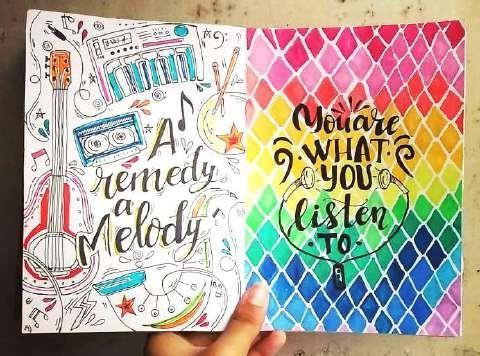 A
remedy
a
Melody
You are
WHAT
YOU
listen
TO